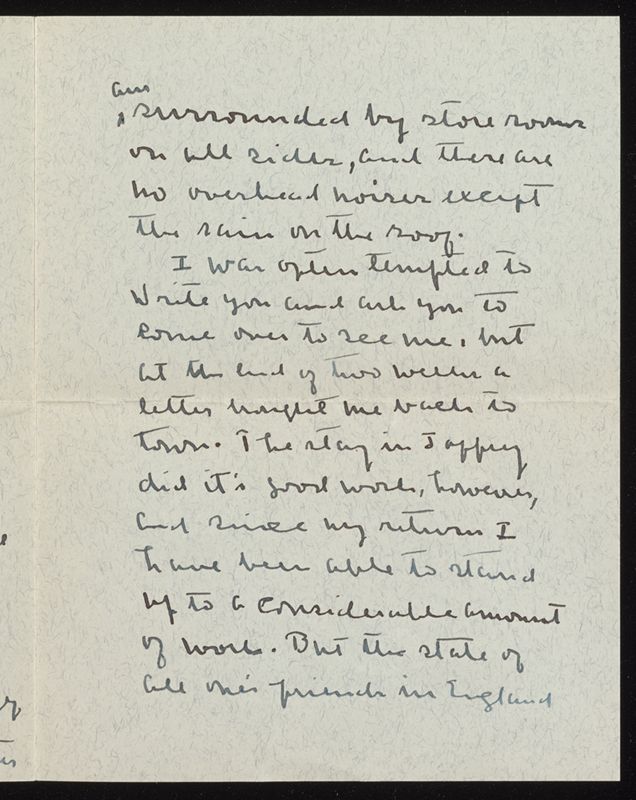 am
, surrounded by store rooms
on all sides, and there are
no overhead noises except
the rain on the roof.
I was often tempted to
write you and ask you to
come over to see me, but
at the end of two weeks a
letter brought me back to
town. The stay in Jaffrey
did it's good work, however,
and since my return I
have been able to stand
up to a considerable amount
of work. But the state of
all one's friends in England